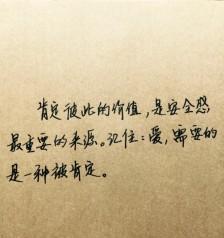 肯定彼此的价值，是安全感
最重要的来源。记住：爱，需要的
是一种被肯定。